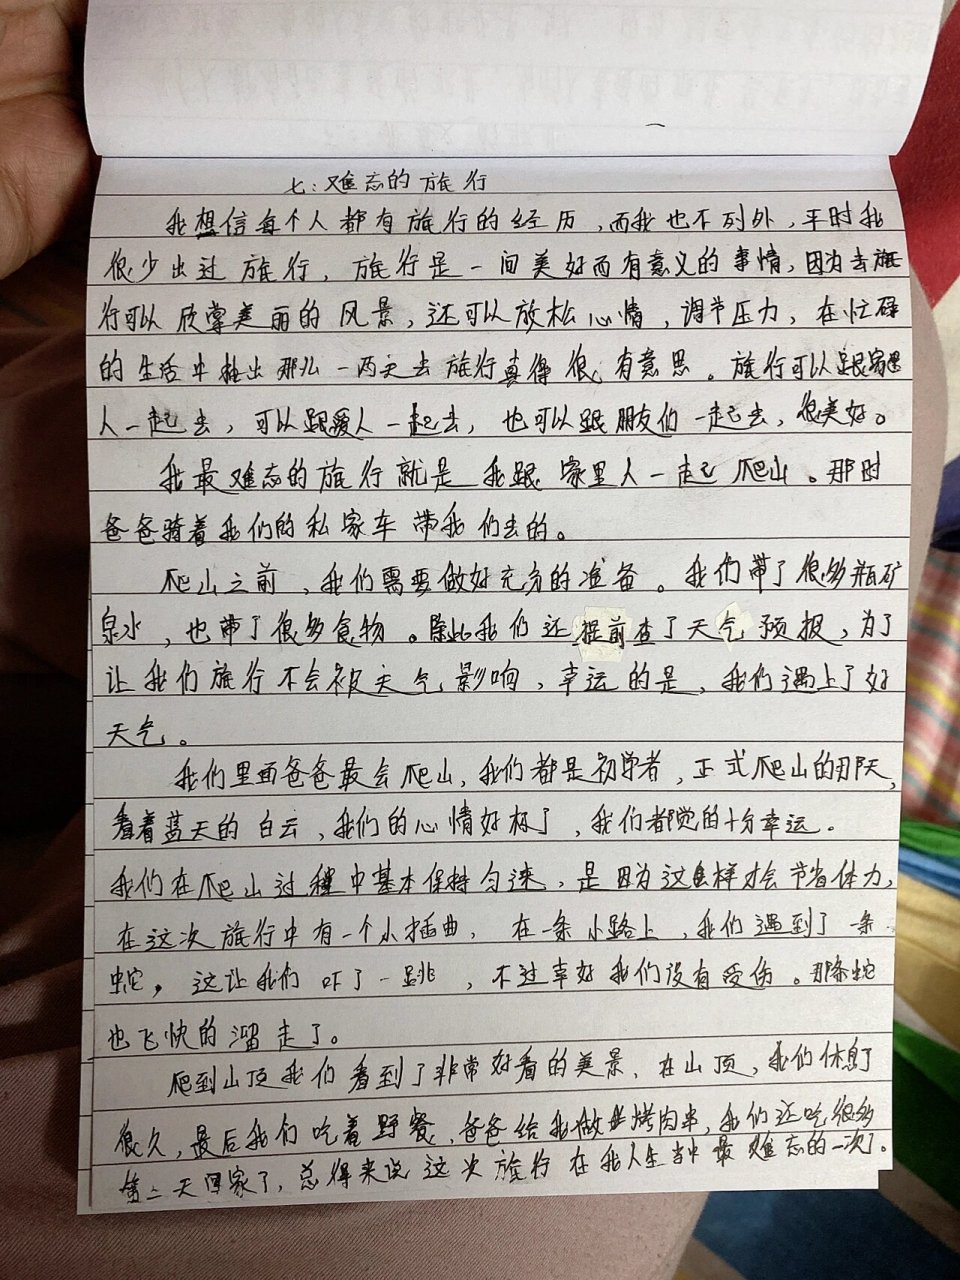 七：难忘的旅行
我想信每个人都有旅行的经历，而我也不列外，平时我
很少出过旅行，旅行是一间美好而有意义的事情，因为去旅
行可以欣赏美丽的风景，还可以放松心情，调节压力，在忙碌
的生活中抽出那么一两天去旅行真得很有意思。旅行可以跟家里
人一起去，可以跟爱人一起去，也可以跟朋友们一起去，很美好。
我最难忘的旅行就是我跟家里人一起爬山。那时
爸爸骑着我们的私家车带我们去的。
爬山之前，我们需要做好充分的准备。我们带了很多瓶矿
泉水，也带了很多食物。除此我们还提前查了天气预报，为了
让我们旅行不会被天气影响，幸运的是，我们遇上了好
天气。
我们里面爸爸最会爬山，我们都是初学者，正式爬山的那天，
看着蓝天的白云，我们的心情好极了，我们都觉的十分幸运。
我们在爬山过程中基本保持匀速，是因为这样才会节省体力，
在这次旅行中有一个小插曲，在一条小路上，我们遇到了一条
蛇，这让我们吓了一跳，不过幸好我们没有受伤。那条蛇
也飞快的溜走了。
爬到山顶我们看到了非常好看的美景，在山顶，我们休息了
很久，最后我们吃着野餐，爸爸给我做烤肉串，我们还吃很多
第二天回家了，总得来说这次旅行在我人生当中最难忘的一次了。